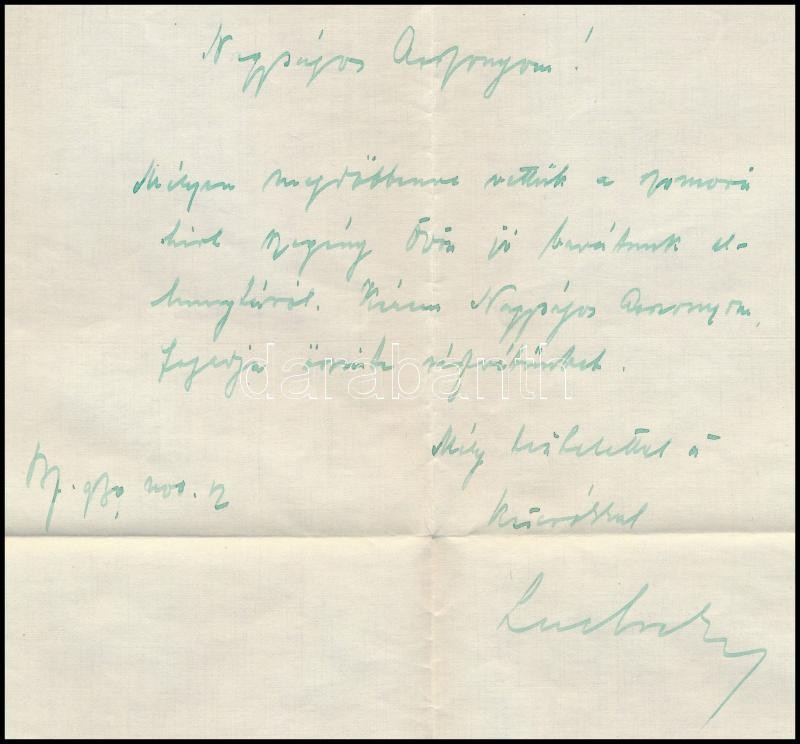 Nagyságos Asszonyom!
Mélyen megdöbbenve vettük a szomorú
hírt szegény jó barátunk el-
hunytáról. Kérem Nagyságos Asszonyom,
fogadja őszinte részvétünket.
Mély tisztelettel a
Bp. nov. 12
darabanth